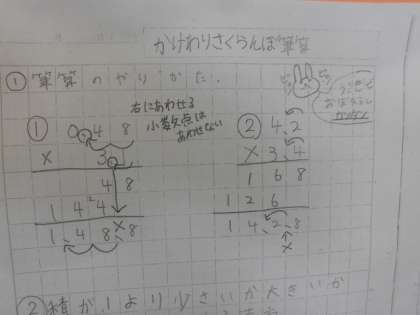 かけわりさくらんぼ筆算
① 筆算のやりかた.
右にあわせる
小数点は
あわせない
① 0.48
× 3.1
48
144
1.488
② 4.2
× 3.4
168
126
14.28
② 積が1より少さいか大きいか